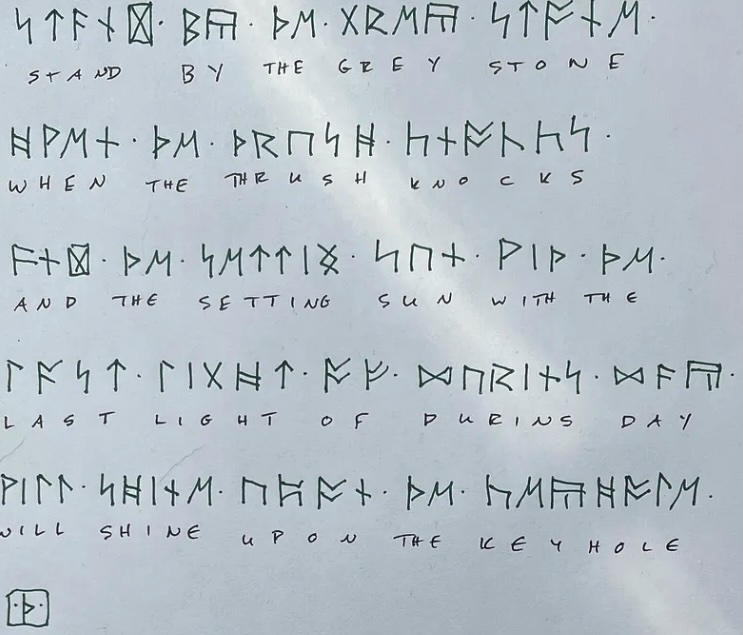 ᛋᛏᚫᚾᛥ· ᛒᚣ· ᚦᛖ· ᚷᚱᛖᚣ· ᛋᛏᚩᚾᛖ·
STAND BY THE GREY STONE
ᚻᚹᛖᚾ· ᚦᛖ· ᚦᚱᚢᛋᚻ· ᛱᚾᚩᚳᛱᛋ·
WHEN THE THRUSH KNOCKS
ᚫᚾᛥ· ᚦᛖ· ᛋᛖᛏᛏᛁᛝ· ᛋᚢᚾ· ᚹᛁᚦ· ᚦᛖ·
AND THE SETTING SUN WITH THE
ᛚᚫᛋᛏ· ᛚᛁᚷᚻᛏ· ᚩᚠ· ᛞᚢᚱᛁᚾᛋ· ᛞᚫᚣ·
LAST LIGHT OF DURINS DAY
ᚹᛁᛚᛚ· ᛋᚻᛁᚾᛖ· ᚢᛈᚩᚾ· ᚦᛖ· ᛱᛖᚣᚻᚩᛚᛖ·
WILL SHINE UPON THE KEYHOLE
·ᚦ·